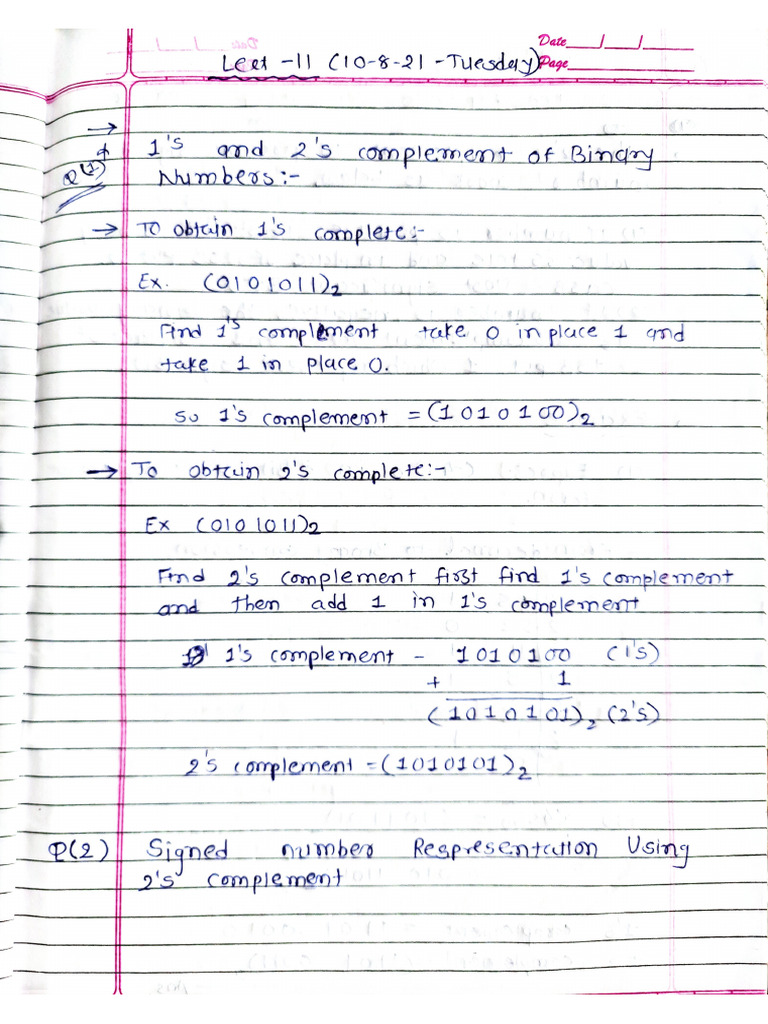 Date___/___/___
Lect -11 (10-8-21 -Tuesday) Page
→
Q(1) 1's and 2's complement of Binary
Numbers:-
→ To obtain 1's complete:-
Ex. (0101011)2
Find 1's complement take 0 in place 1 and
take 1 in place 0.
so 1's complement = (1010100)2
→ To obtain 2's complete:-
Ex (0101011)2
Find 2's complement first find 1's complement
and then add 1 in 1's complement
1's complement - 1010100 (1's)
+ 1
(1010101)2 (2's)
2's complement = (1010101)2
Q(2) Signed number Respresentation Using
2's complement